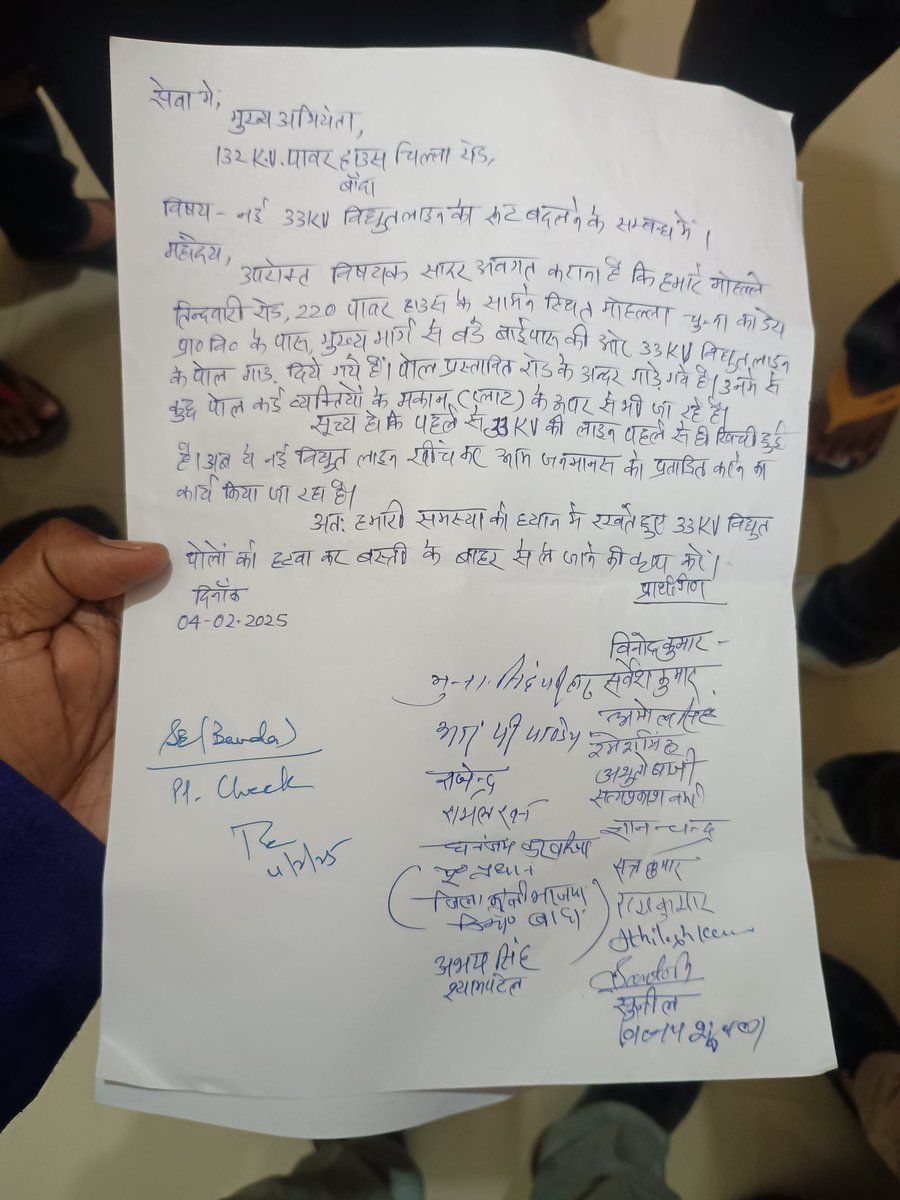 सेवा में,
मुख्य अभियंता,
132 K.V. पावर हाउस चिल्ला रोड,
बाँदा
विषय - नई 33KV विद्युत लाइन का रूट बदलने के सम्बन्ध में ।
महोदय,
उपरोक्त विषयक सादर अवगत कराना है कि हमारे मोहल्ले
तिन्दवारी रोड, 220 पावर हाउस के सामने स्थित मोहल्ला चुन्ना का डेरा
प्रा० वि० के पास, मुख्य मार्ग से बडे बाईपास की ओर 33KV विद्युत लाइन
के पोल गाड. दिये गये हैं। पोल प्रस्तावित रोड के अन्दर गाडे गये है। उनमें से
कुछ पोल कई व्यक्तियों के मकान (प्लाट) के ऊपर से भी जा रहे है।
सूच्य हो कि पहले से 33KV की लाइन पहले से ही खिची हुई
है। अब ये नई विद्युत लाइन खीच कर आम जनमानस को प्रताडित करने का
कार्य किया जा रहा है।
अतः हमारी समस्या को ध्यान में रखते हुए 33KV विद्युत
पोलों को हटवा कर बस्ती के बाहर से ले जाने की कृपा करें।
दिनाँक
04-02-2025
प्रार्थीगण
विनोद कुमार -
सर्वेश कुमार
रमेश सिंह
आशुतोष बाजी
सत्यप्रकाश वर्मा
ज्ञान चन्द्र
राजकुमार
सुशील
राजेन्द्र
पूर्व प्रधान
अभय सिंह
श्यामपटेल
SE (Banda)
Pl. Check
4/2/25